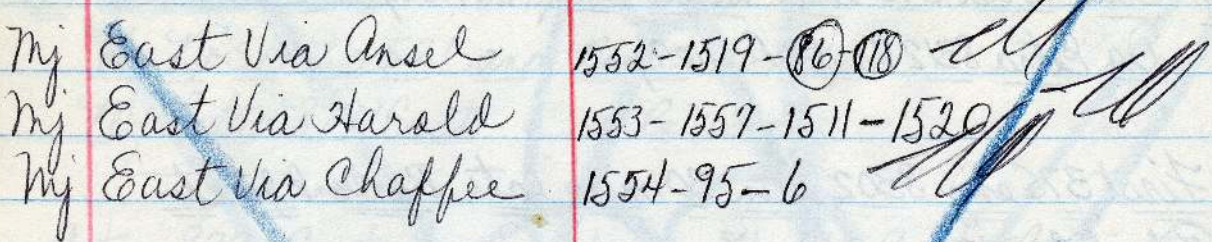 Mj East Via Ansel 1552-1519-86-118
Mj East Via Harold 1553-1557-1511-1520
Mj East Via Chaffee 1554-95-6